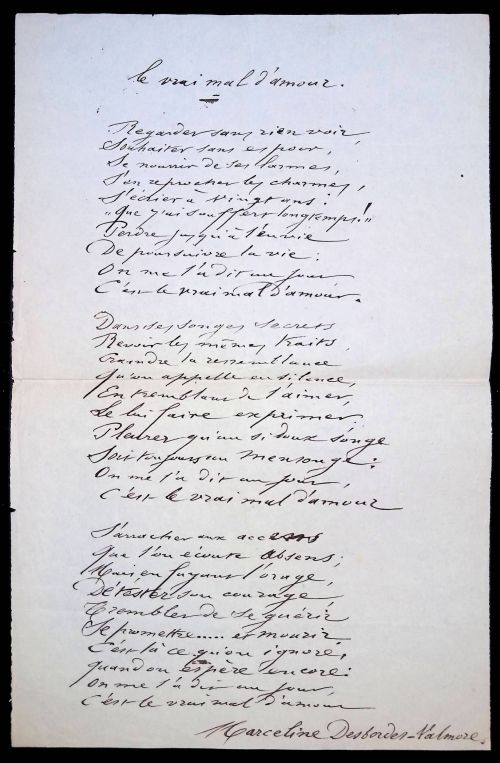 le vrai mal d'amour.
Regarder sans rien voir,
Souhaiter sans espoir,
Se nourrir de ses larmes,
S'en reprocher les charmes,
S'écrier à vingt ans :
"Que j'ai souffert longtemps!"
Perdre jusqu'à l'envie
De poursuivre la vie :
On me l'a dit un jour
C'est le vrai mal d'amour.
Dans ses songes secrets
Revoir les mêmes traits,
Craindre la ressemblance
Qu'on appelle en silence,
En tremblant de l'aimer,
Le lui faire exprimer,
Pleurer qu'un si doux songe
Soit toujours un mensonge :
On me l'a dit un jour,
C'est le vrai mal d'amour
S'arracher aux accens
Que l'on écoute absens;
Mais en fuyant l'orage,
Détester son courage
Trembler de se guérir
Se promettre..... et mourir
C'est là ce qu'on ignore,
quand on espère encore :
On me l'a dit un jour,
C'est le vrai mal d'amour
Marceline Desbordes-Valmore.